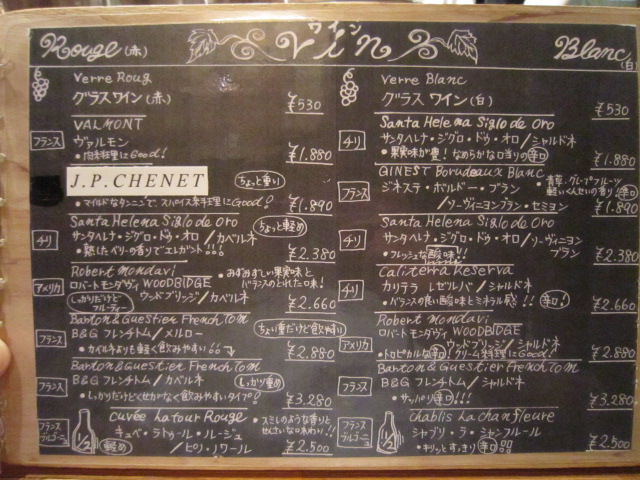 Rouge (赤)
ワイン
Vin
Blanc (白)
Verre Roug
グラスワイン(赤) ¥530
VALMONT
フランス
ヴァルモン
• 肉料理にGood! ¥1.880
J.P.CHENET
ちょっと重い
• マイルドなタンニンで、スパイス系料理にGood! ¥1.890
Santa Helena Siglo de Oro
ちょっと軽め
チリ
サンタヘレナ・ジグロ・ドゥ・オロ/カベルネ
• 熟したベリーの香りでエレガント!!! ¥2.380
Robert Mondavi
• みずみずしい果実味と
バランスのとれた味!
アメリカ
ロバートモンダヴィ WOODBIDGE
ウッドブリッジ/カベルネ
しっかりだけど
フルーティー
¥2.660
Barton & Guestier French Tom
ちょい重だけど飲みやすい
フランス
B&G フレンチトム/メルロー
• カベルネよりも軽く飲みやすい!! ¥2.880
Barton & Guestier French Tom
フランス
B&G フレンチトム/カベルネ
しっかり重め
• しっかりだけどくせがなく飲みやすいタイプ! ¥3.280
フランス
ブルゴーニュ
1/2
cuvée Latour Rouge
• スミレのような香りと
せんさいな味わい!!
キュベ・ラトゥール・ルージュ
/ピノ・ノワール
軽め
¥2.500
Verre Blanc
グラスワイン(白) ¥530
Santa Helena Siglo de Oro
チリ
サンタヘレナ・ジグロ・ドゥ・オロ/シャルドネ
• 果実味が豊!なめらかな口当りの辛口 ¥1.880
GINEST Borudeaux Blanc
• 青草・グレープフルーツ
軽いくんせいの香り 辛口
フランス
ジネステ・ボルドー・ブラン
/ソーヴィニヨンブラン・セミヨン ¥1.890
Santa Helena Siglo de Oro
チリ
サンタヘレナ・ジグロ・ドゥ・オロ/ソーヴィニヨン
ブラン
• フレッシュな酸味!! ¥2.380
Caliterra Reserva
チリ
カリテラ レゼルバ/シャルドネ
• バランスの良い酸味とミネラル感!! 辛口! ¥2.660
Robert Mondavi
ロバートモンダヴィ WOODBIDGE
アメリカ
ウッドブリッジ/シャルドネ
• トロピカルな辛口 クリーム料理にGood! ¥2.880
Barton & Guestier French Tom
フランス
B&G フレンチトム/シャルドネ
• サッパリ辛口!!! ¥3.280
フランス
ブルゴーニュ
1/2
Chablis La Chanfleure
シャブリ・ラ・シャンフルール
• キリッとすっきり 辛口!! ¥2.500